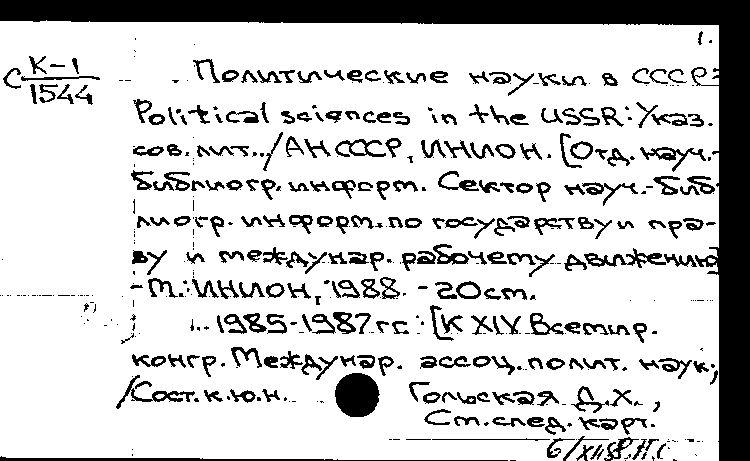 1.
С К-1
1544
Политические науки в СССР=
Political sciences in the USSR: Указ.
сов. лит../АН СССР, ИНИОН. [Отд. науч.-
библиогр. информ. Сектор науч.-биб-
лиогр. информ. по государству и пра-
ву и междунар. рабочему движению]
-М.: ИНИОН, 1988. - 20см.
... 1985-1987гг.: [К XIV Всемир.
конгр. Междунар. ассоц. полит. наук;
/Сост. к.ю.н. Гольская Д.Х.,
См. след. карт.